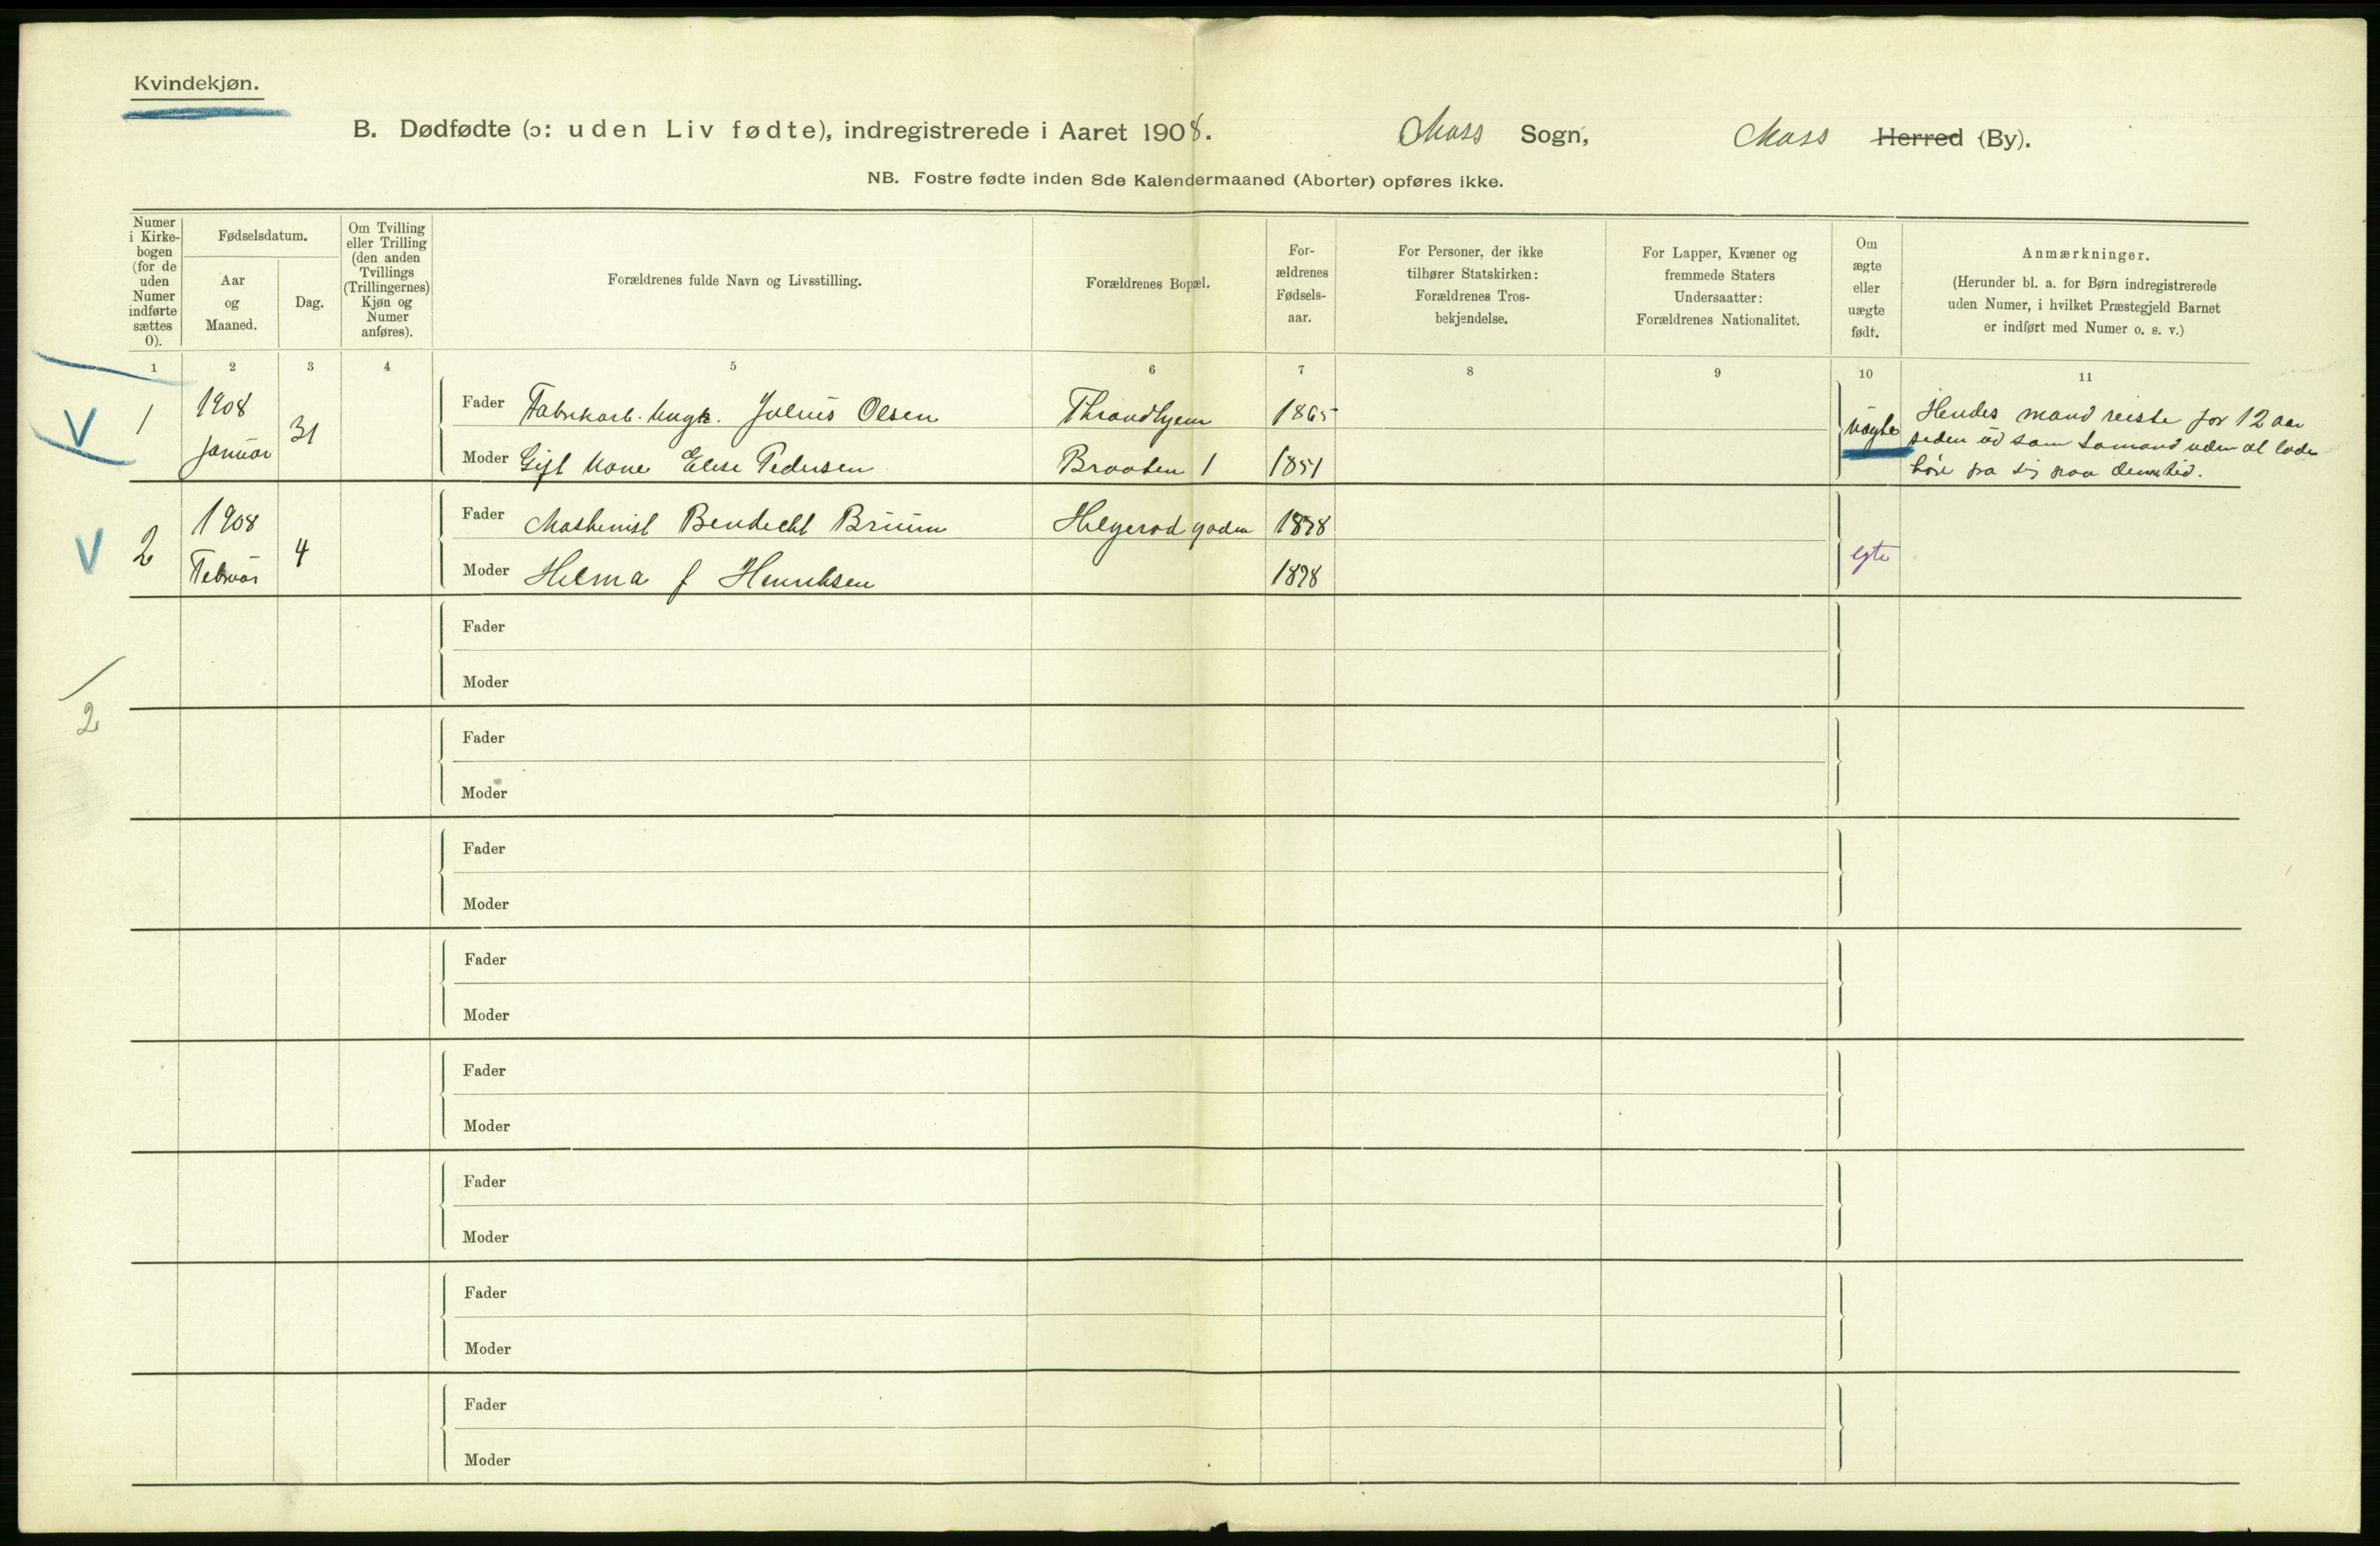 Kvindekjøn.
B. Dødfødte (ɔ: uden Liv fødte), indregistrerede i Aaret 1908. Moss Sogn, Moss Herred (By).
NB. Fostre fødte inden 8de Kalendermaaned (Aborter) opføres ikke.
Numer
i Kirke-
bogen
(for de
uden
Numer
indførte
sættes
0).
Fødselsdatum.
Aar
og
Maaned.
Dag.
Om Tvilling
eller Trilling
(den anden
Tvillings
(Trillingernes)
Kjøn og
Numer
anføres).
Forældrenes fulde Navn og Livsstilling.
Forældrenes Bopæl.
For-
ældrenes
Fødsels-
aar.
For Personer, der ikke
tilhører Statskirken:
Forældrenes Tros-
bekjendelse.
For Lapper, Kvæner og
fremmede Staters
Undersaatter:
Forældrenes Nationalitet.
Om
ægte
eller
uægte
født.
Anmærkninger.
(Herunder bl. a. for Børn indregistrerede
uden Numer, i hvilket Præstegjeld Barnet
er indført med Numer o. s. v.)
1 2 3 4 5 6 7 8 9 10 11
V 1 1908 Januar 31
Fader Fabrikarb. Ungk. Julius Olsen Throndhjem 1865
Moder Gift Kone Elise Pedersen Braaten 1 1851
uægte
Hendes mand reiste for 12 aar
siden ud som Sømand uden at lade
høre fra sig fra denne tid.
V 2 1908 Februar 4
Fader Maskinist Bendikt Bruun Helgerødgaden 1878
Moder Hilma f Henriksen 1878
egte
Fader
Moder
2
Fader
Moder
Fader
Moder
Fader
Moder
Fader
Moder
Fader
Moder
Fader
Moder
Fader
Moder